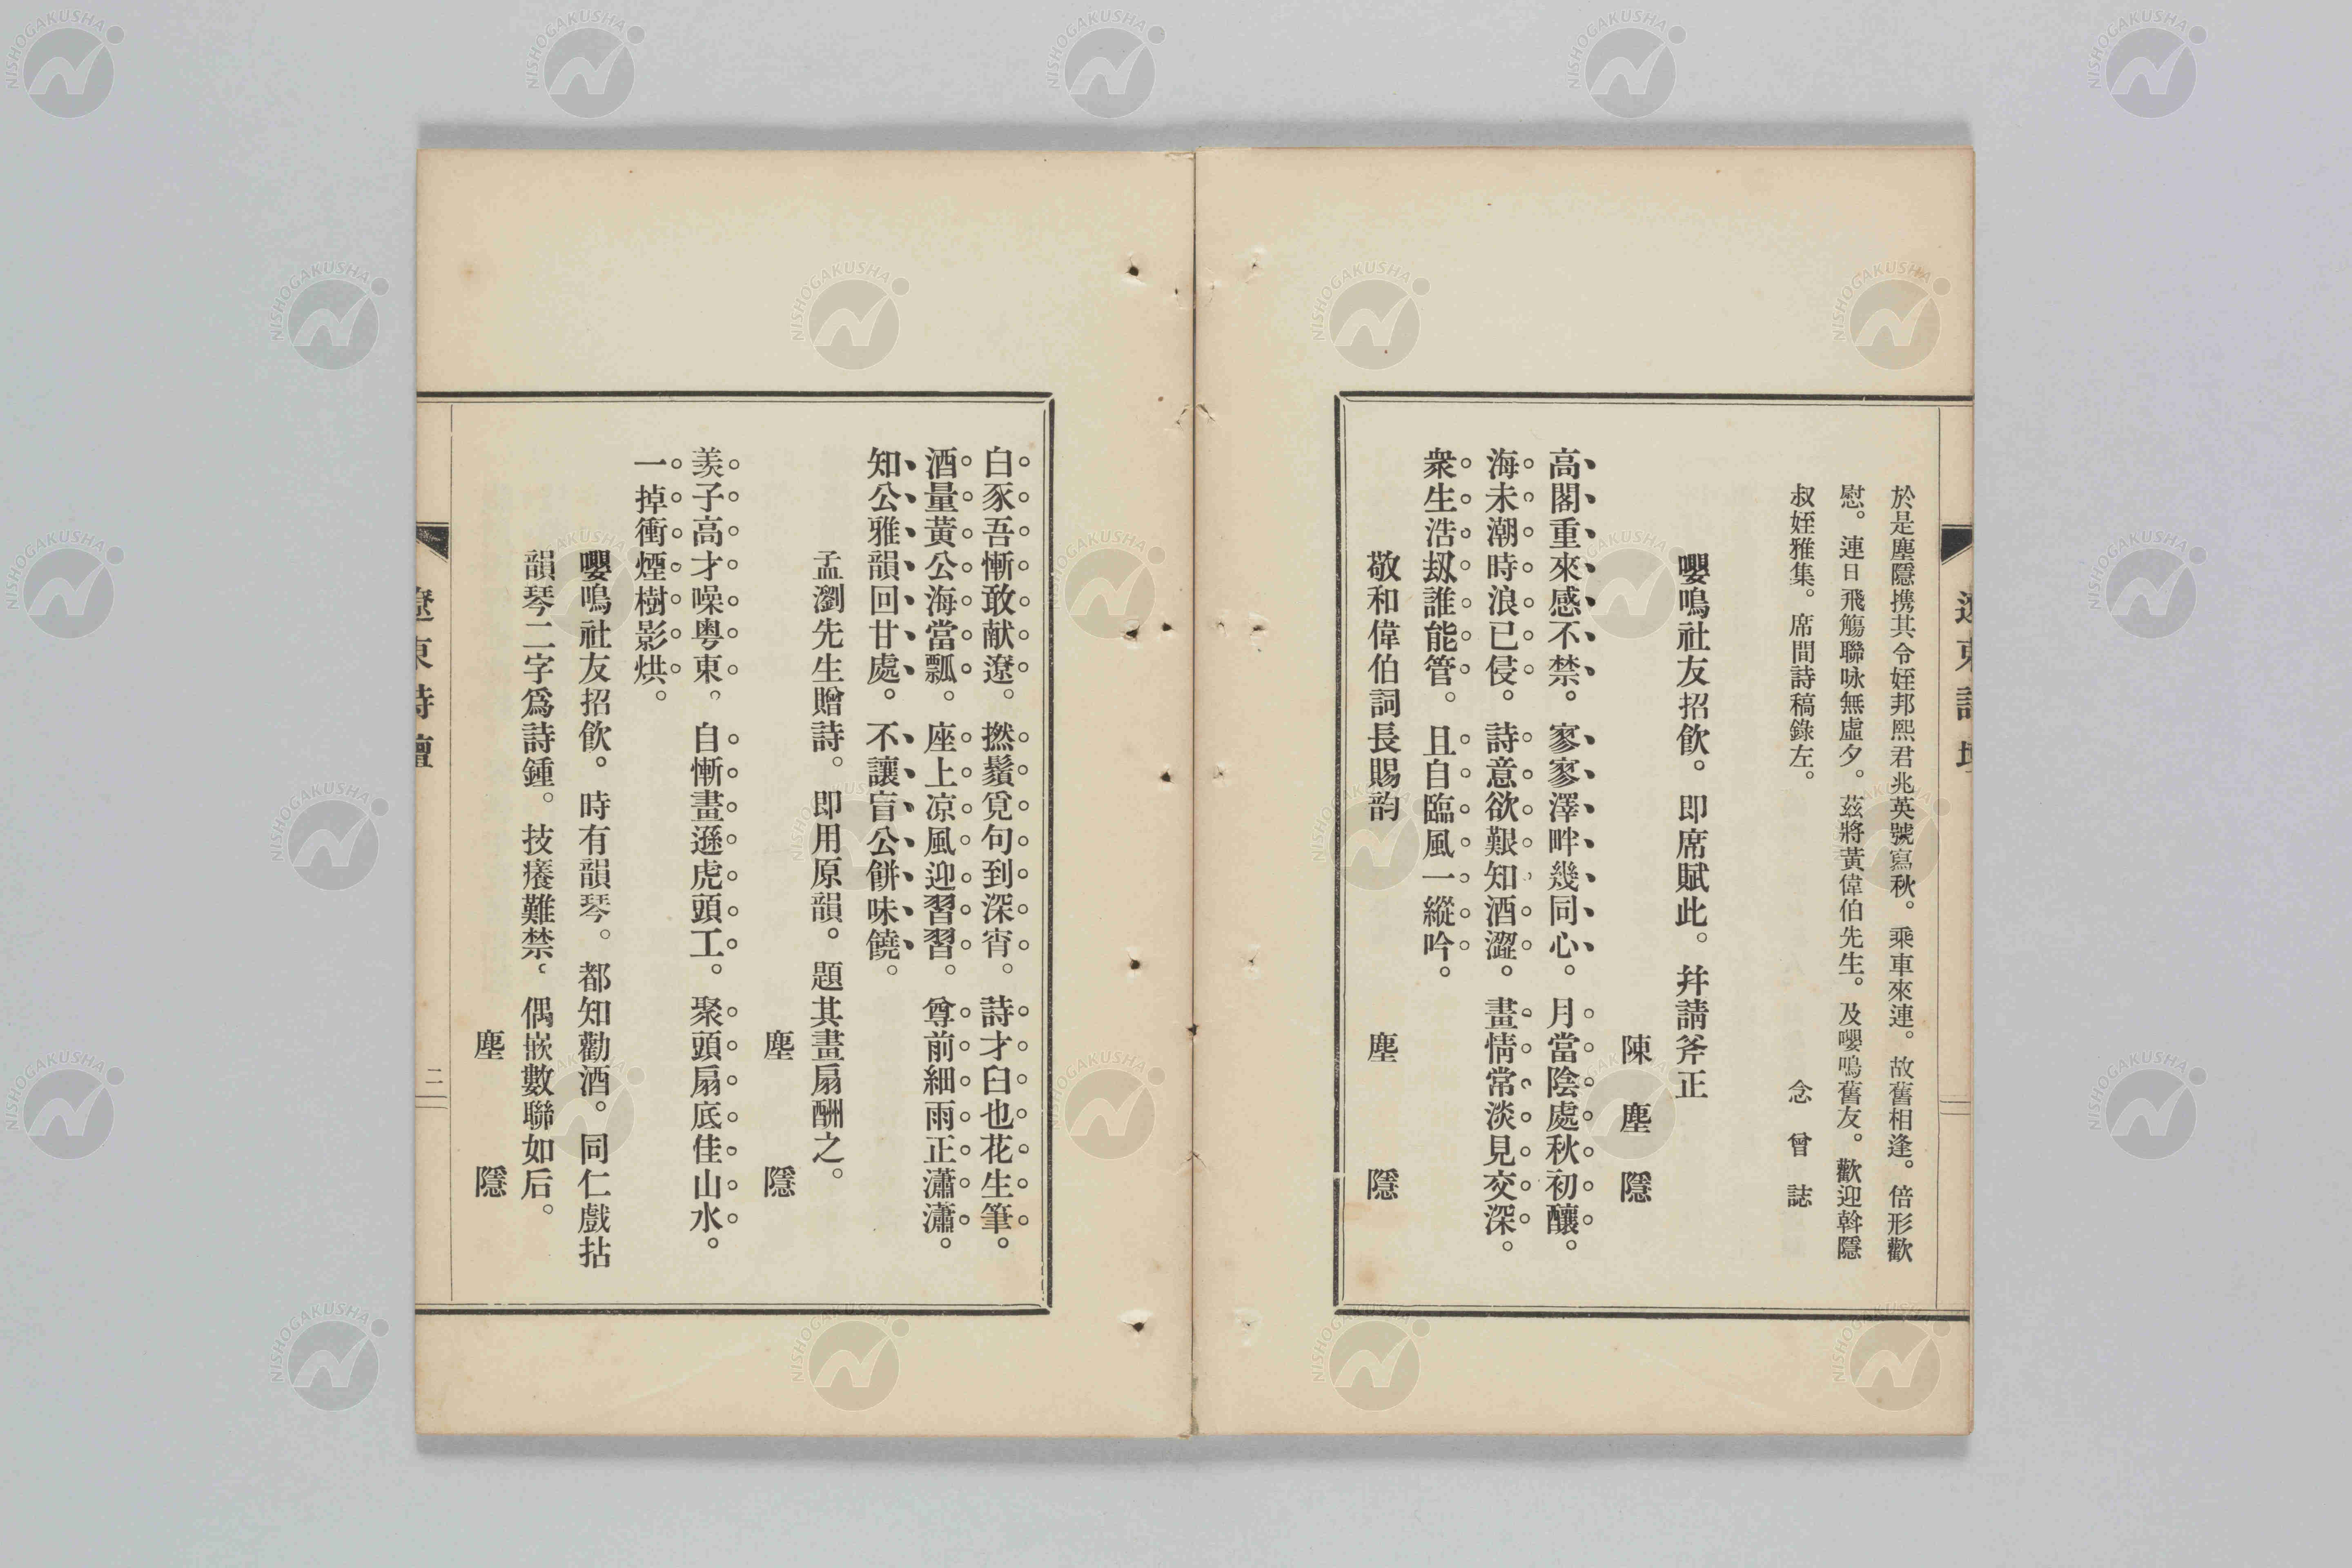 於是塵隱携其令姪邦熙君兆英號寫秋。乘車來連。故舊相逢。倍形歡
慰。連日飛觴聯咏無虛夕。茲將黃偉伯先生。及嚶鳴舊友。歡迎斡隱
叔姪雅集。席間詩稿錄左。　念曾誌
嚶鳴社友招飮。即席賦此。幷請斧正
陳塵隱
高閣重來感不禁。寥寥澤畔幾同心。月當陰處秋初釀。
海未潮時浪已侵。詩意欲艱知酒澀。畫情常淡見交深。
衆生浩刼誰能管。且自臨風一縱吟。
敬和偉伯詞長賜韵　塵隱
白豕吾慚敢献遼。撚鬚覓句到深宵。詩才臼也花生筆。
酒量黃公海當瓢。座上凉風迎習習。尊前細雨正瀟瀟。
知公雅韻回甘處。不讓盲公餅味饒。
孟瀏先生贈詩。即用原韻。題其畫扇酬之。
塵隱
羨子高才噪粤東。自慚畫遜虎頭工。聚頭扇底佳山水。
一掉衝煙樹影烘。
嚶鳴社友招飮。時有韻琴。都知勸酒。同仁戲拈
韻琴二字爲詩鍾。技癢難禁。偶嵌數聯如后。
塵隱
遼東詩壇
二
NISHOGAKUSHA